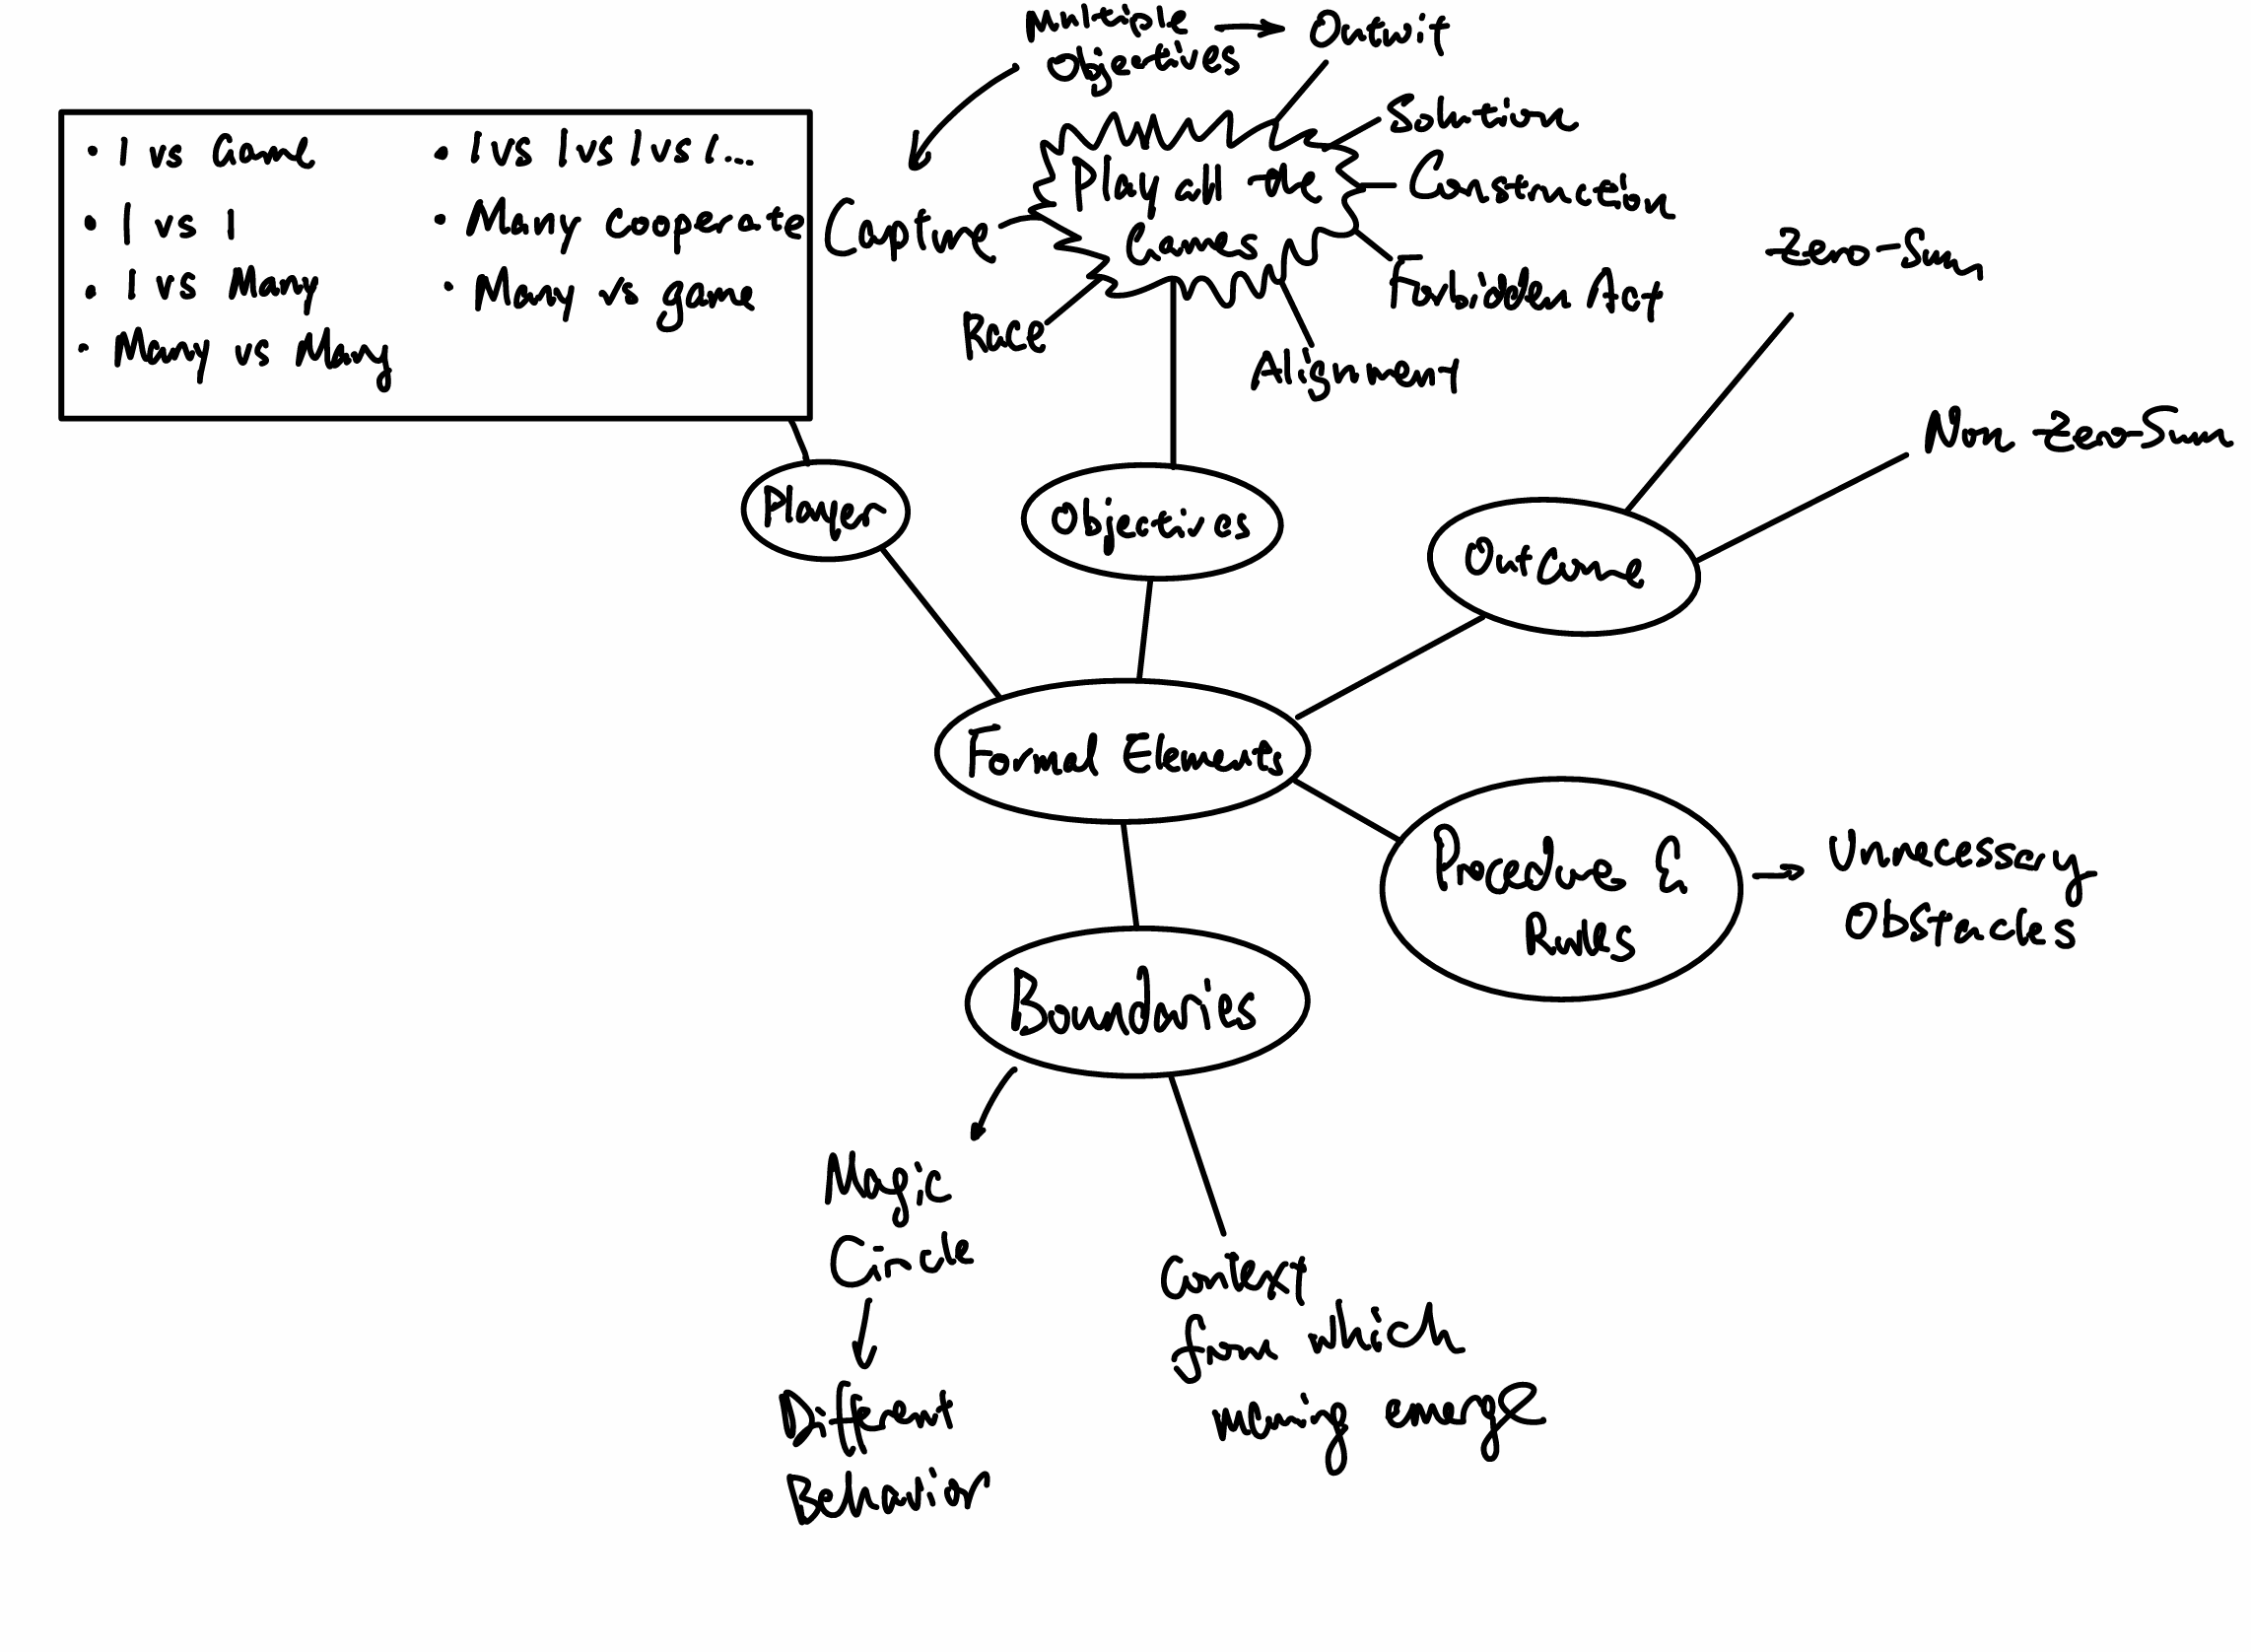 Multiple
Objectives
Outwit
Solution
Construction
Forbidden Act
Alignment
Race
Capture
Play all the
Games
• 1 vs Game
• 1 vs 1
• 1 vs Many
• Many vs Many
• 1 vs 1 vs 1 vs 1...
• Many Cooperate
• Many vs game
Zero-Sum
Non Zero-Sum
Player
Objectives
Outcome
Formal Elements
Procedures &
Rules
Unnecessary
Obstacles
Boundaries
Magic
Circle
Different
Behavior
Context
from which
mening emerge